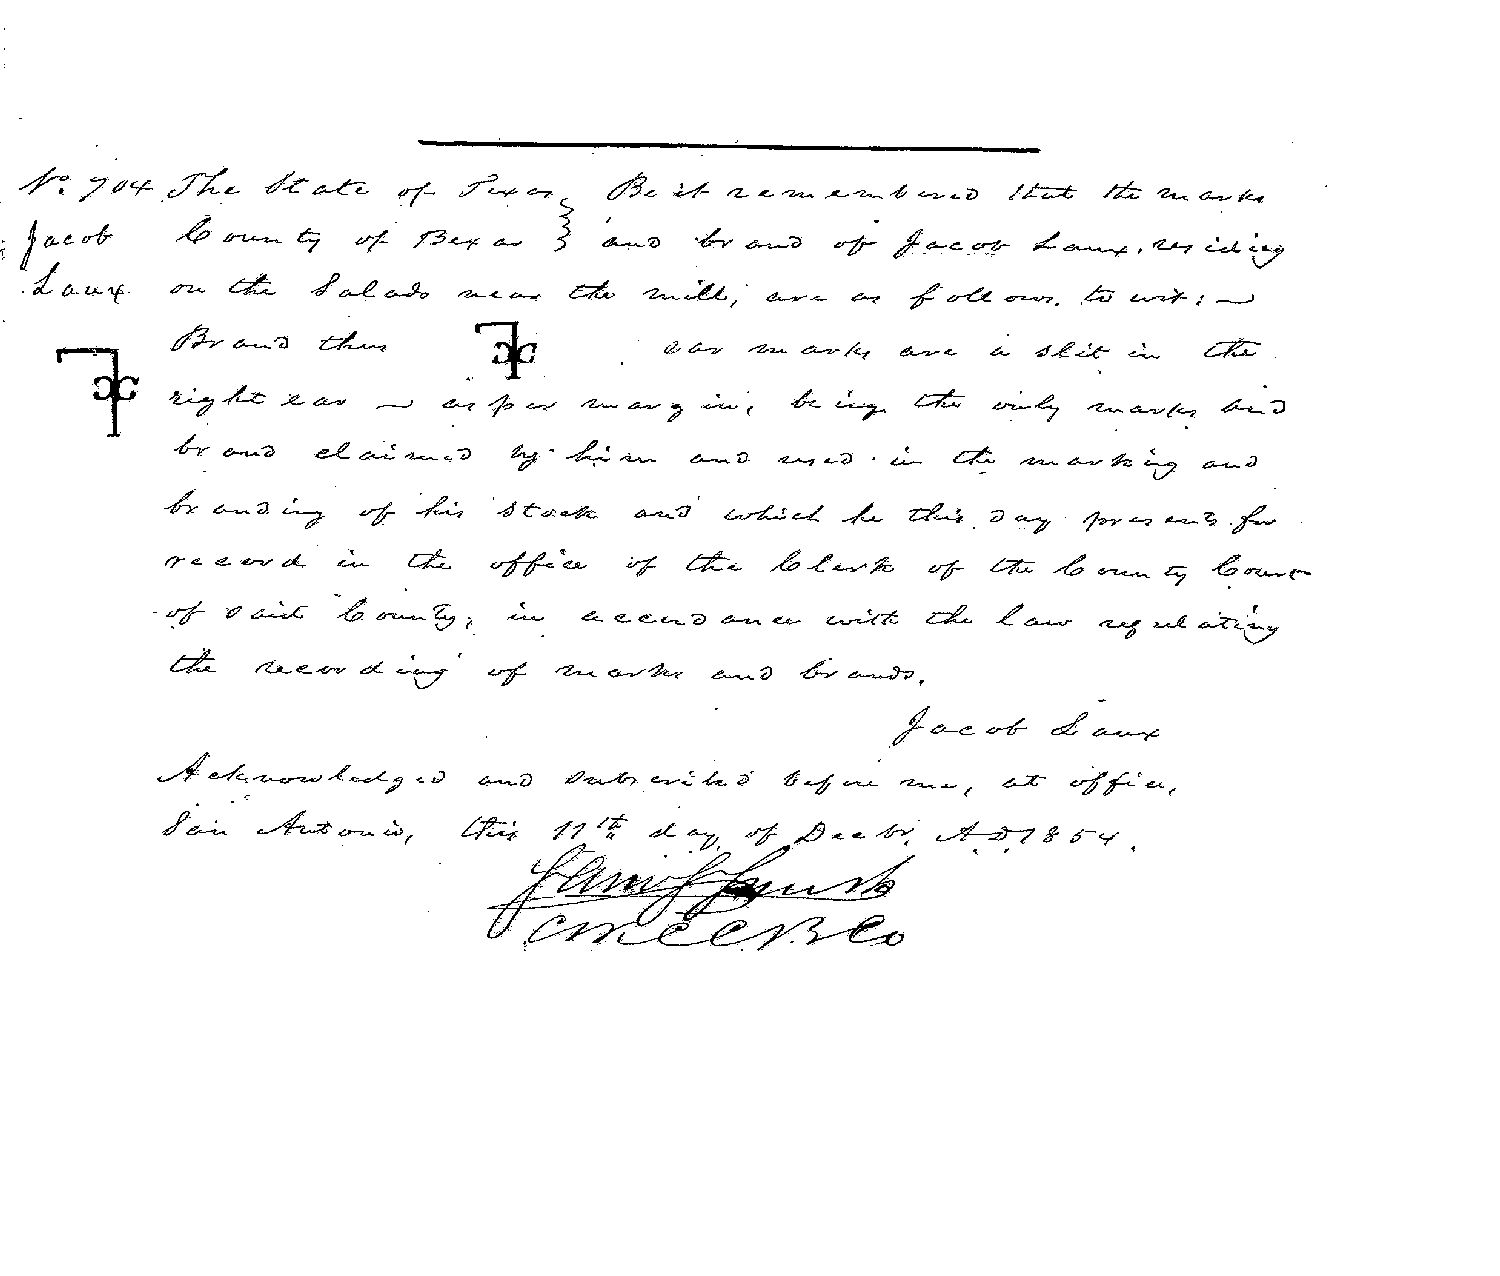 No. 704 The State of Texas } Be it remembered that the marks
Jacob County of Bexar } and brand of Jacob Laux, residing
Laux on the Salado near the mill, are as follows, to wit: —
Brand thus ear marks are a slit in the
right ear — as per margin, being the only marks and
brand claimed by him and used in the marking and
branding of his stock and which he this day presents for
record in the office of the Clerk of the County Court
of said County, in accordance with the law regulating
the recording of marks and brands.
Jacob Laux
Acknowledged and subscribed before me, at office,
San Antonio, this 11th day of Decbr. A.D. 1854.
C C B Co